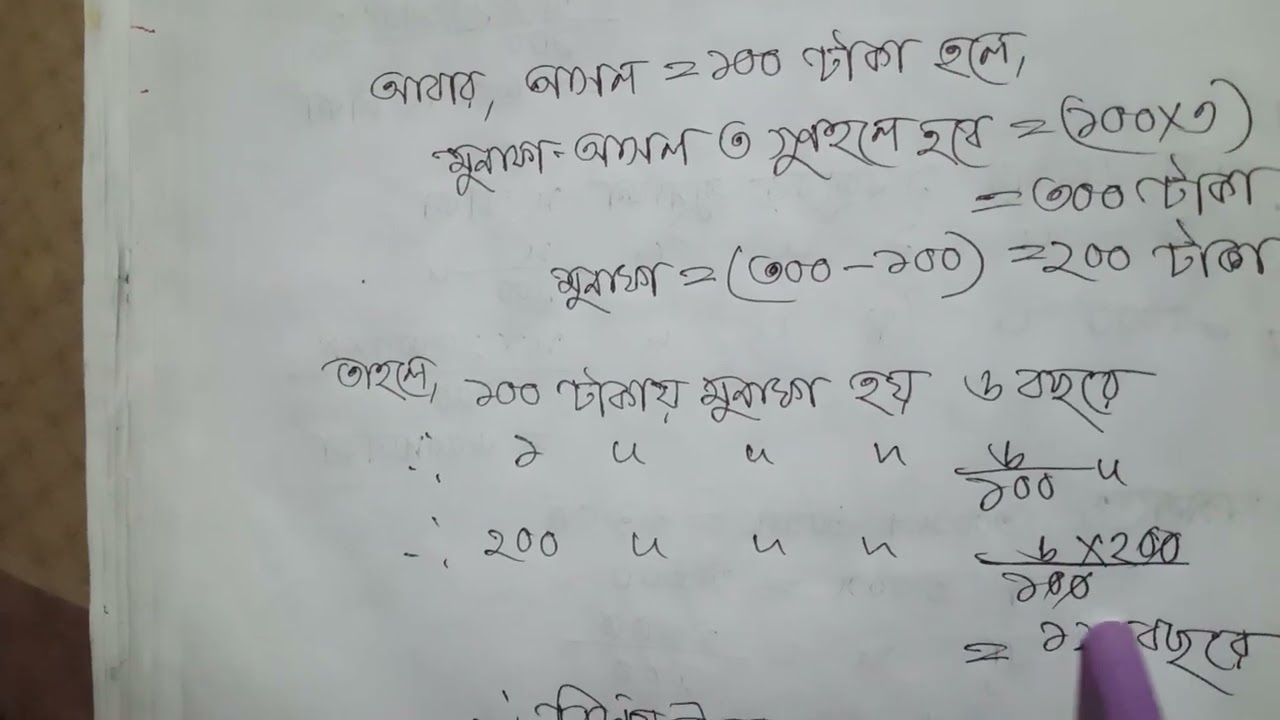 আবার, আসল = ১০০ টাকা হলে,
মুনাফা-আসল ৩ গুণ হলে হবে = (১০০×৩)
= ৩০০ টাকা
মুনাফা = (৩০০ – ১০০) = ২০০ টাকা
তাহলে, ১০০ টাকায় মুনাফা হয় ৬ বছরে
∴ ১ " " " ৬/১০০ "
∴ ২০০ " " " ৬×২০০/১০০
= বছরে